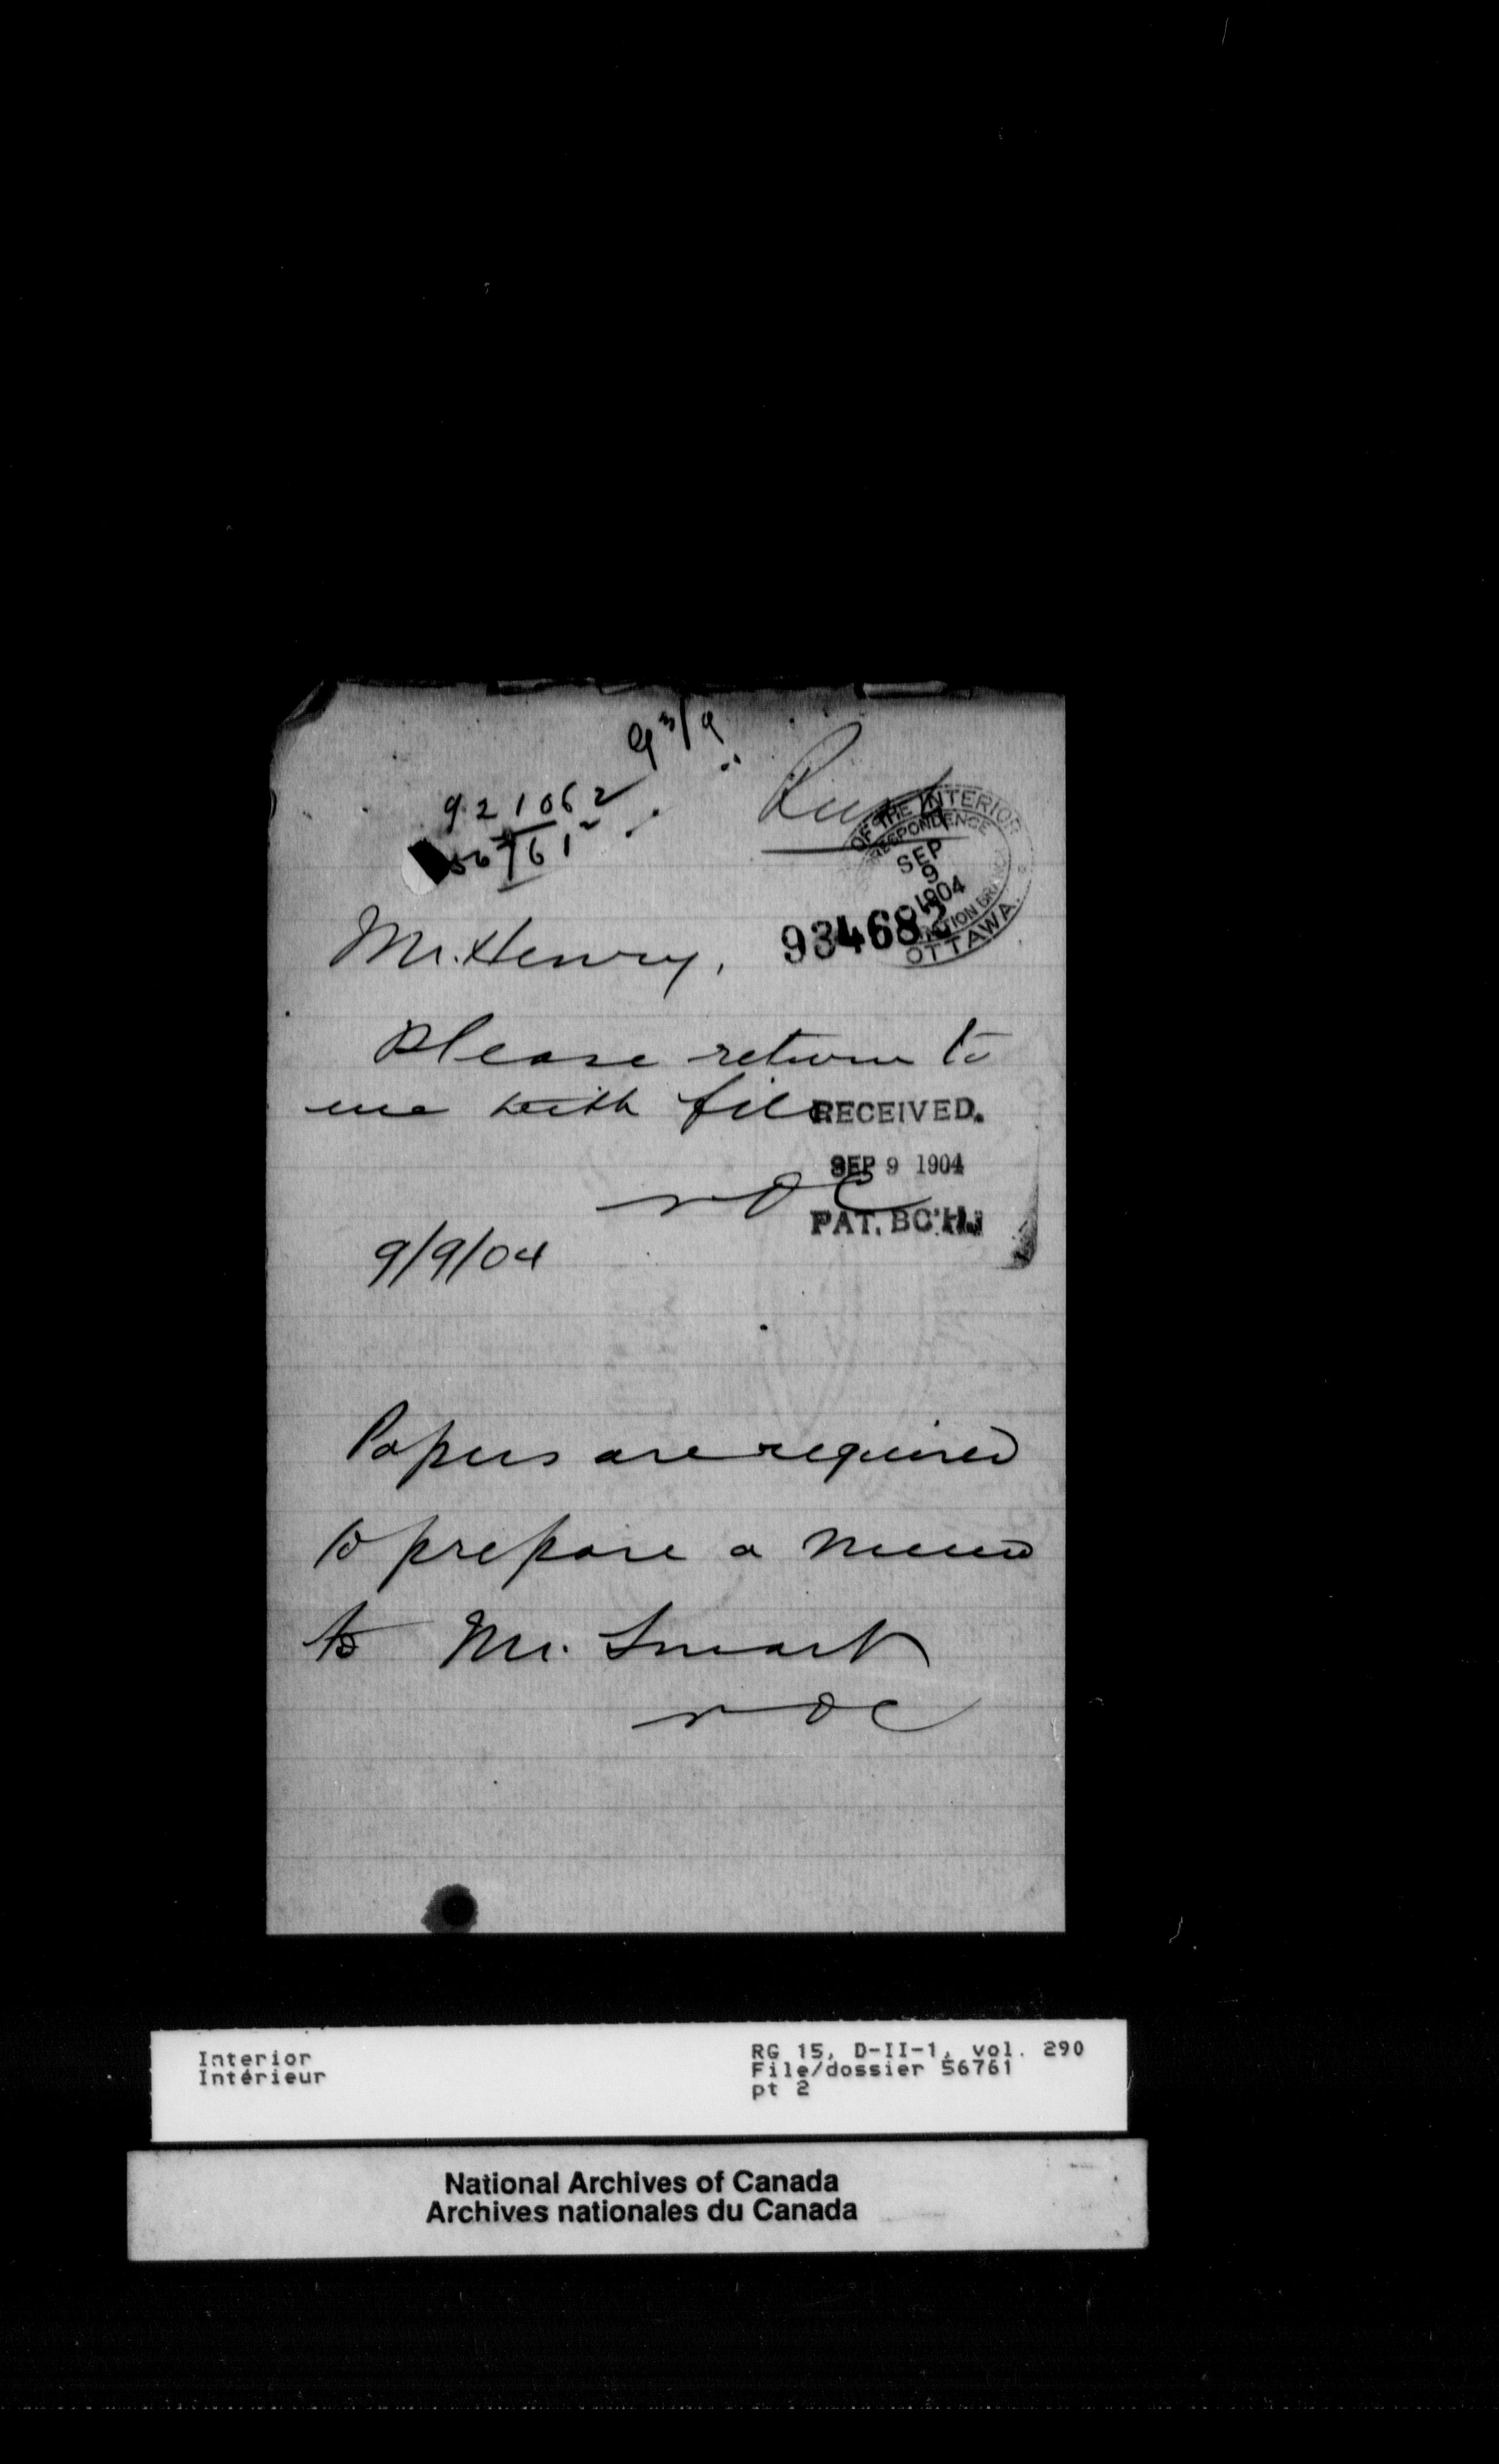 921062
56761
OF THE INTERIOR
SEP
9
1904
OTTAWA.
934682
Mr. Henry,
Please return to
me with file
RECEIVED.
SEP 9 1904
PAT. BCH.
9/9/04
Papers are required
to prepare a memo
to Mr. Smart
Interior
Intérieur
RG 15, D-II-1, vol. 290
File/dossier 56761
pt 2
National Archives of Canada
Archives nationales du Canada